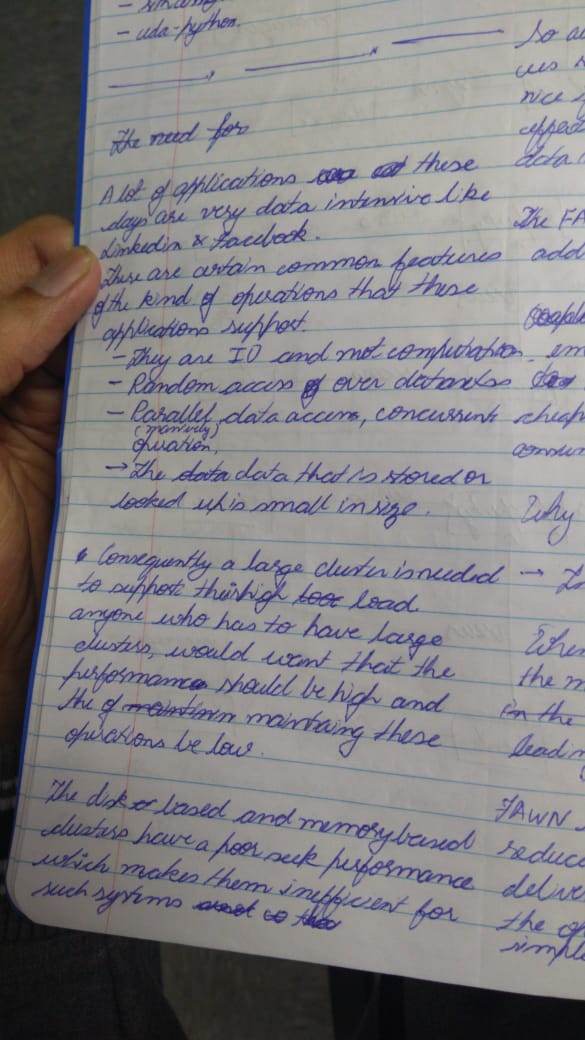 - uda-python.
The need for
A lot of applications these
days are very data intensive like
Linkedin & facebook.
There are certain common features
of the kind of operations that these
applications support.
- They are IO and not computation
- Random access over datands
- Parallel, data access, concurrent
(massively)
operation,
→ The data data that is stored or
looked up is small in size.
Consequently a large cluster is needed
to support their high load.
anyone who has to have large
clusters, would want that the
performance should be high and
the of maintaing these
operations be low.
The disk based and memory based
clusters have a poor seek performance
which makes them inefficient for
such systems
So a
nice
data
The FA
add
em
cheap
Why
When
the m
in the
leadin
FAWN
reduce
delive
the op
simple